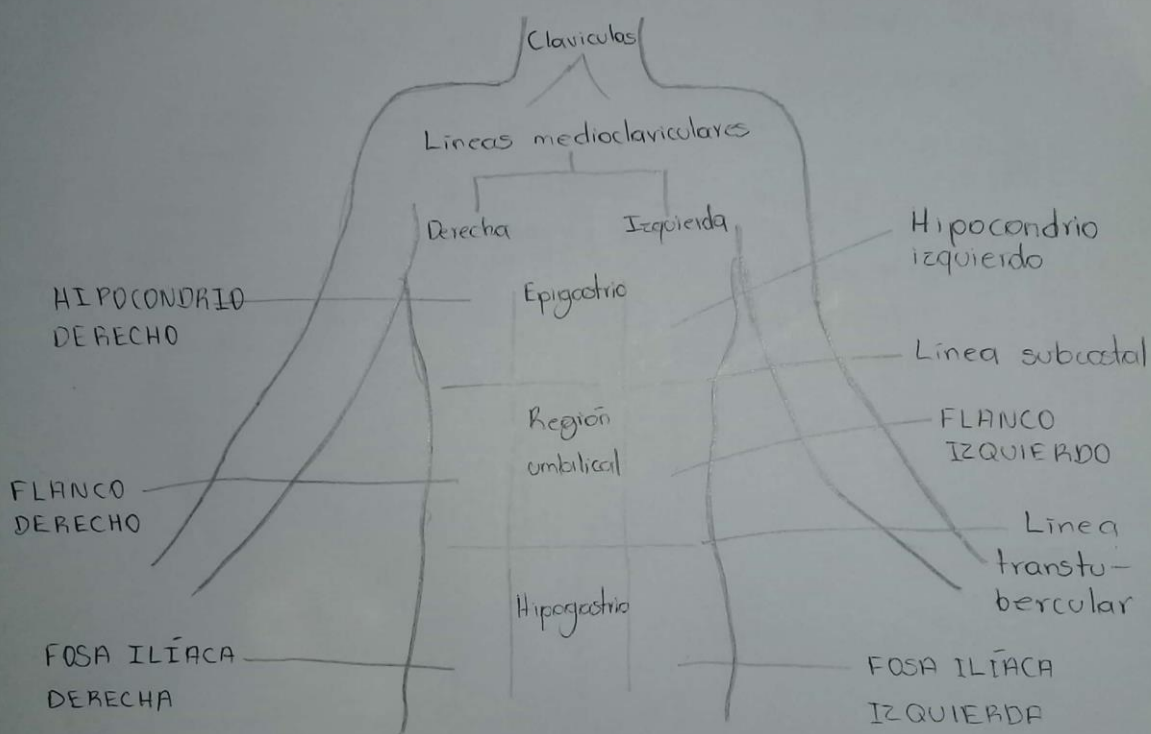 Claviculas
Líneas medioclaviculares
Derecha
Izquierda
Hipocondrio
izquierdo
HIPOCONDRIO
DERECHO
Epigastrio
Línea subcostal
Región
umbilical
FLANCO
IZQUIERDO
FLANCO
DERECHO
Línea
transtu-
bercular
Hipogastrio
FOSA ILÍACA
DERECHA
FOSA ILÍACA
IZQUIERDA